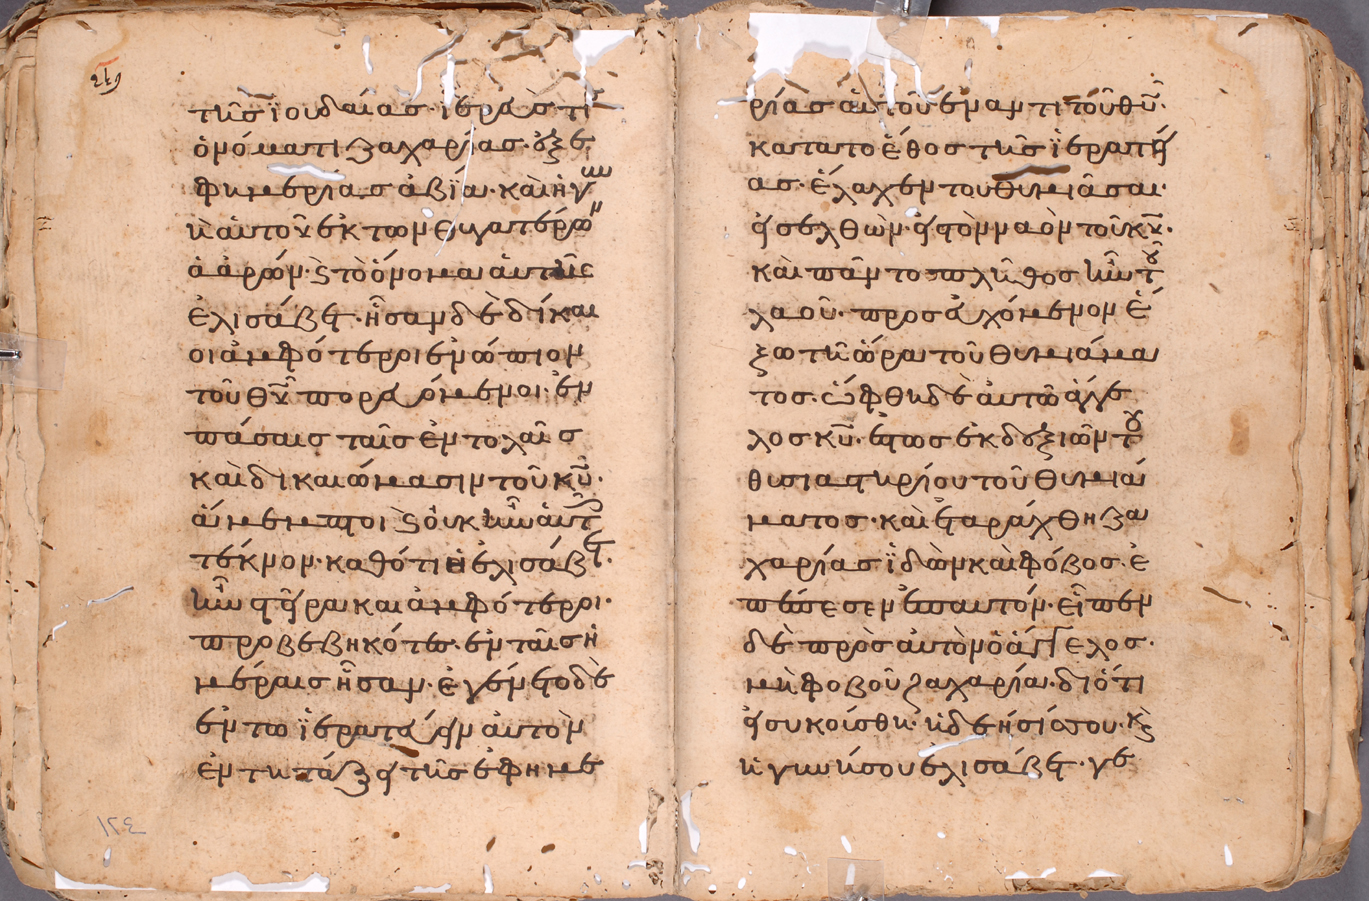 τῆς ἰουδαίας· ἱερεύς τις
ὀνόματι ζαχαρίας· ἐξ ἐ
φημερίας ἀβϊά· καὶ ἡ γυν
ὴ αὐτοῦ ἐκ τῶν θυγατέρων
ἀαρών· ϗ τὸ ὄνομα αὐτῆς
ἐλισάβετ· ἦσαν δὲ δίκαι
οι ἀμφότεροι ἐνώπιον
τοῦ θῦ πορευόμενοι· ἐν
πάσαις ταῖς ἐντολαῖς
καὶ δικαιώμασιν τοῦ κῦ·
ἄμεμπτοι ϗ οὐκ ἦν αὐτοῖς
τέκνον· καθότι ἡ ἐλισάβετ·
ἦν στεῖρα καὶ ἀμφότεροι·
προβεβηκότες· ἐν ταῖς ἡ
μέραις ἦσαν· ἐγένετο δὲ
ἐν τῷ ἱερατεύειν αὐτὸν
ἐν τῇ τάξει τῆς ἐφημε
ρίας αὐτοῦ ἔναντι τοῦ θῦ·
κατὰ τὸ ἔθος τῆς ἱερατεί
ας· ἔλαχεν τοῦ θυμιᾶσαι·
εἰσελθὼν· εἰς τὸν ναὸν τοῦ κῦ·
καὶ πᾶν τὸ πλῆθος ἦν τοῦ
λαοῦ· προσευχόμενον ἔ
ξω τῇ ὥρα τοῦ θυμιάμα
τος· ὤφθη δὲ αὐτῷ ἄγγε
λος κῦ· ἑστὼς ἐκ δεξιῶν τοῦ
θυσιαστηρίου τοῦ θυμιά
ματος· καὶ ἐταράχθη ζα
χαρίας ἰδὼν καὶ φόβος· ἐ
πέπεσεν ἐπ αυτόν· εἶπεν
δὲ πρὸς αὐτὸν ὁ ἄγγελος·
μὴ φοβοῦ ζαχαρία· διότι
εἰσηκούσθη· ἡ δέησίς σου· ϗ
ἡ γυνή σου ἐλισάβετ· γε